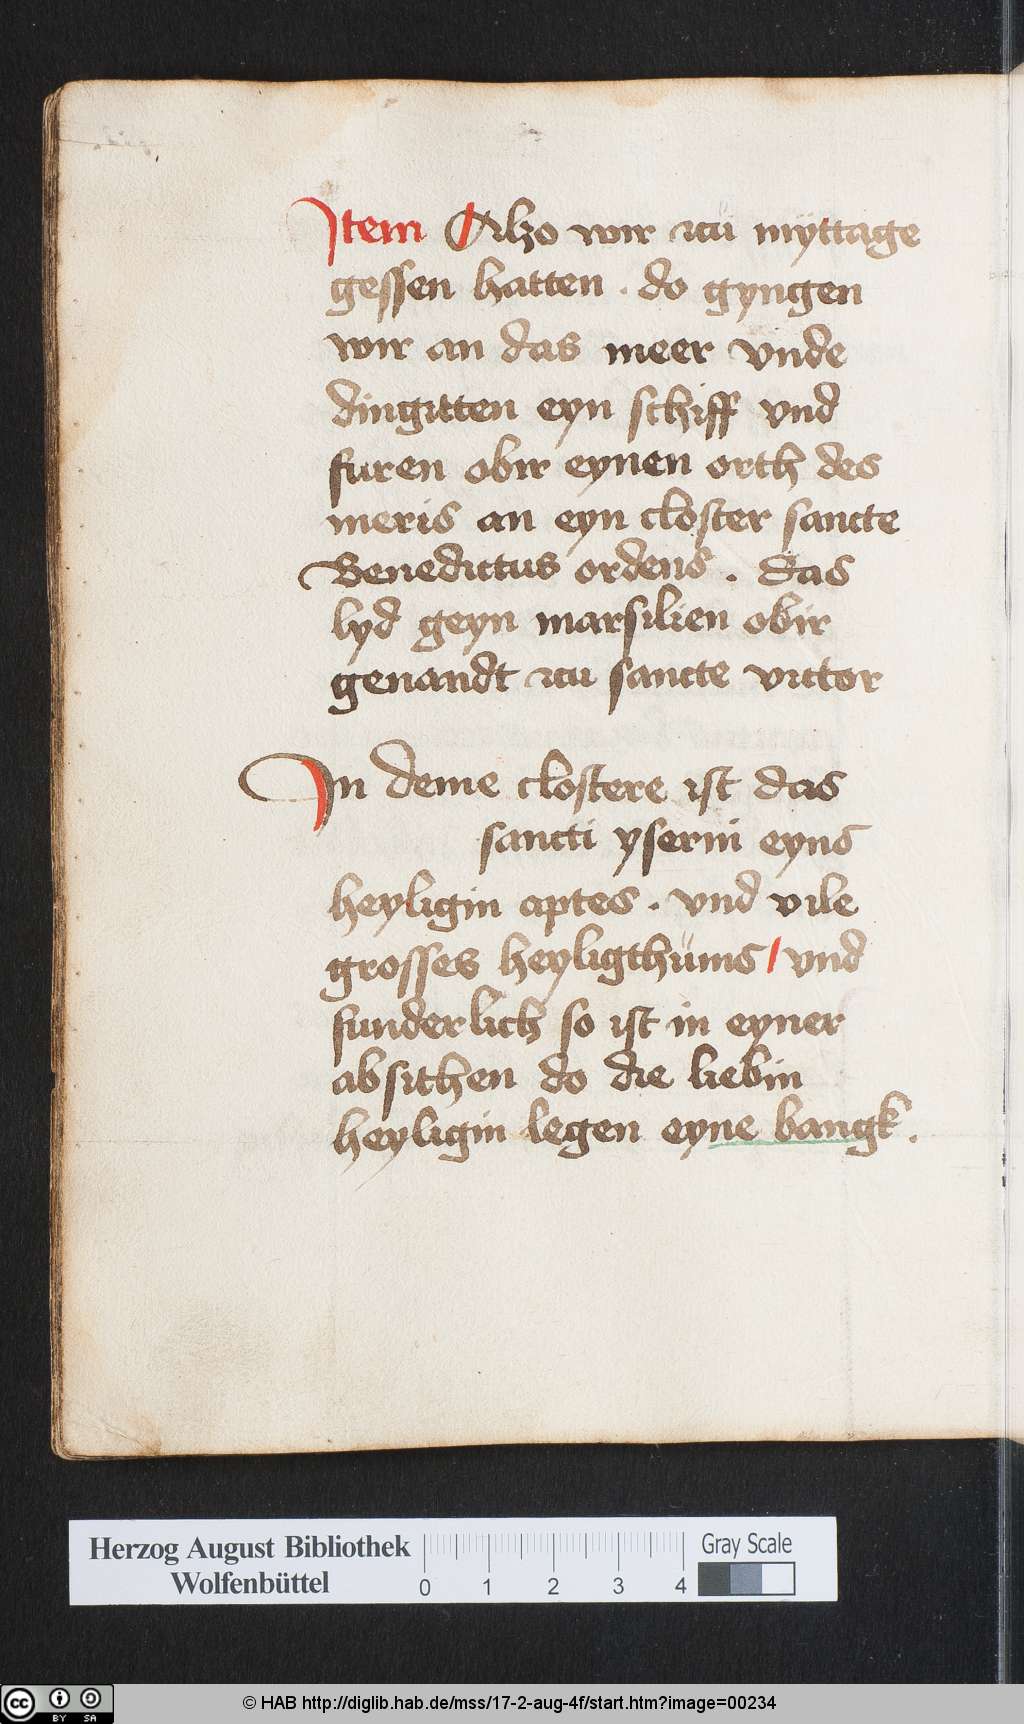 Item Alzo wir zcü myttage
gessen hatten . do gyngen
wir an das meer vnde
dingitten eyn schiff vnd
furen obir eynen orth des
meris an eyn closter sancte
Benedictus ordens . das
lyd geyn marsilien obir
genandt zcu sancte victor
In deme clostere ist das
sancti yserni eyns
heyligin aptes . vnd vile
grosses heyligthüms / vnd
sunderlich so ist in eyner
absithen do die liebin
heyligin legen eyne bangk .
Herzog August Bibliothek
Wolfenbüttel
0 1 2 3 4
Gray Scale
cc BY SA
© HAB http://diglib.hab.de/mss/17-2-aug-4f/start.htm?image=00234